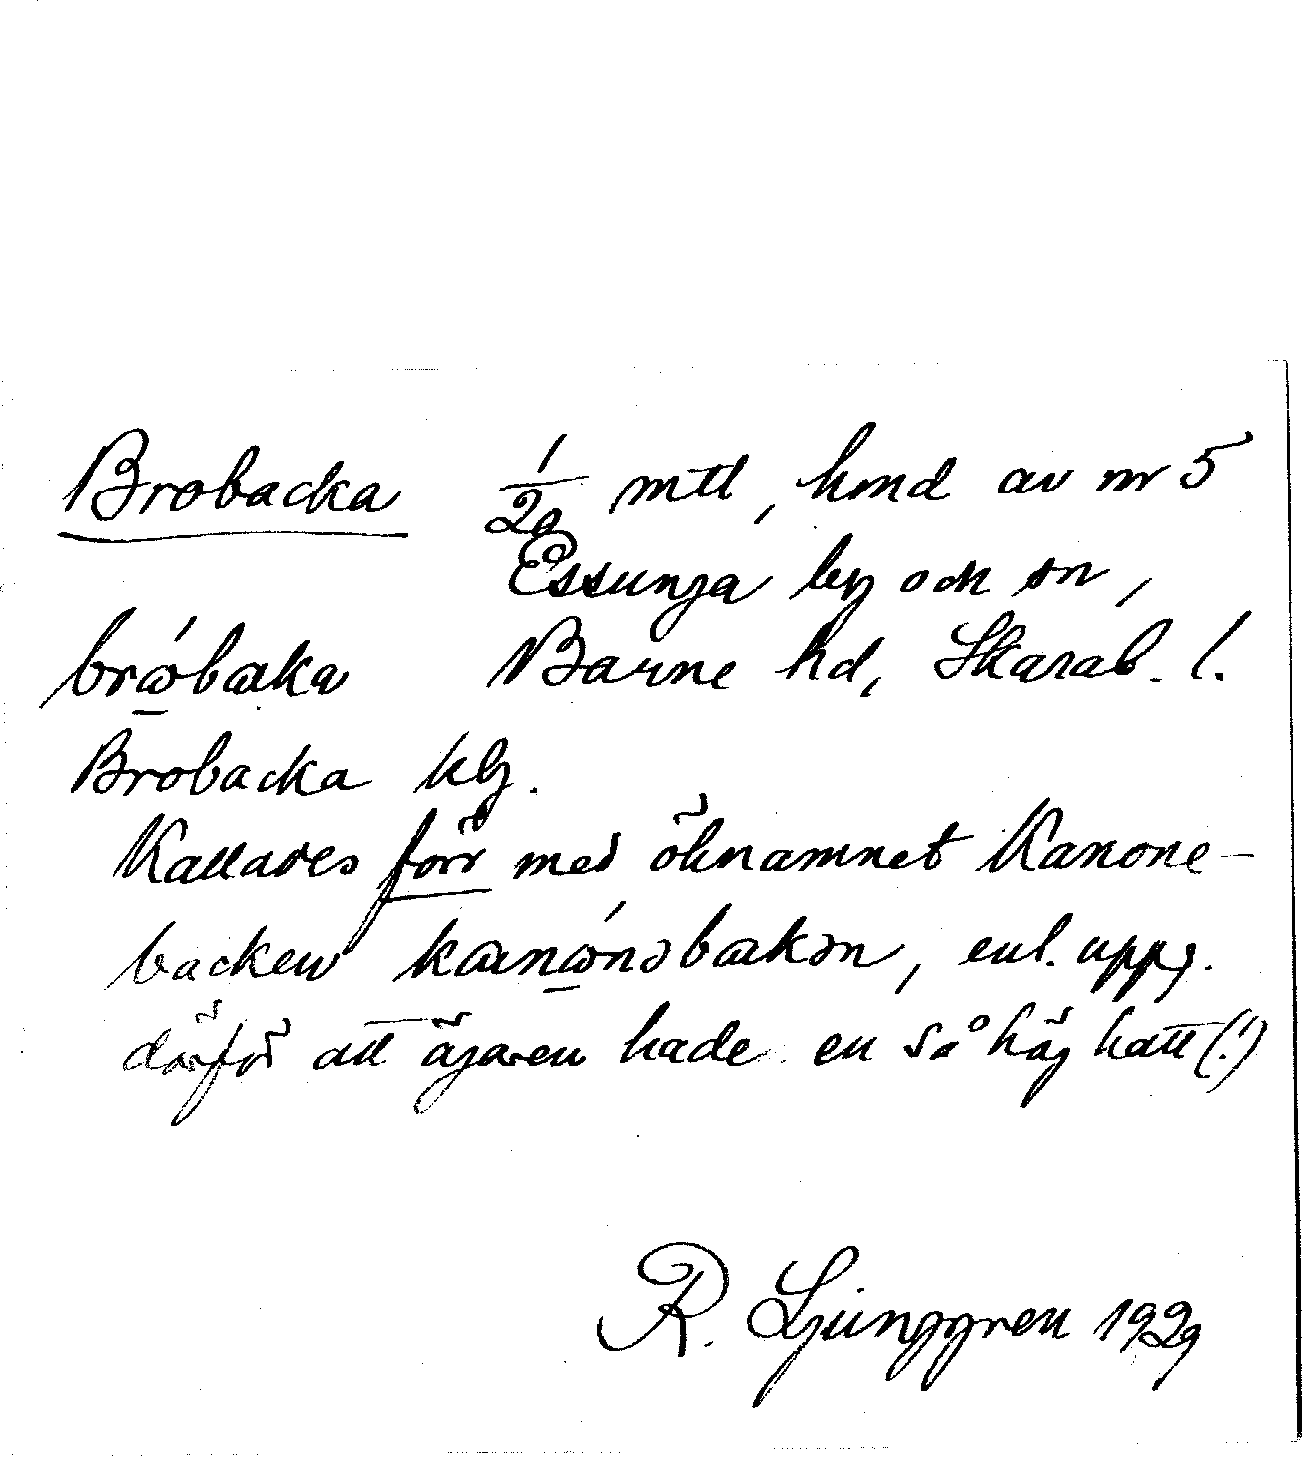 Brobacka 1/20 mtl, hmd av nr 5
Essunga by och sn,
brώ̲bακa Barne hd, Skarab. l.
Brobacka kby.
Kallades förr med öknamnet Kanone-
backen kanώ̲nəbakən, enl. uppg.
därför att ägaren hade en så hög hatt (!)
R. Ljunggren 1929